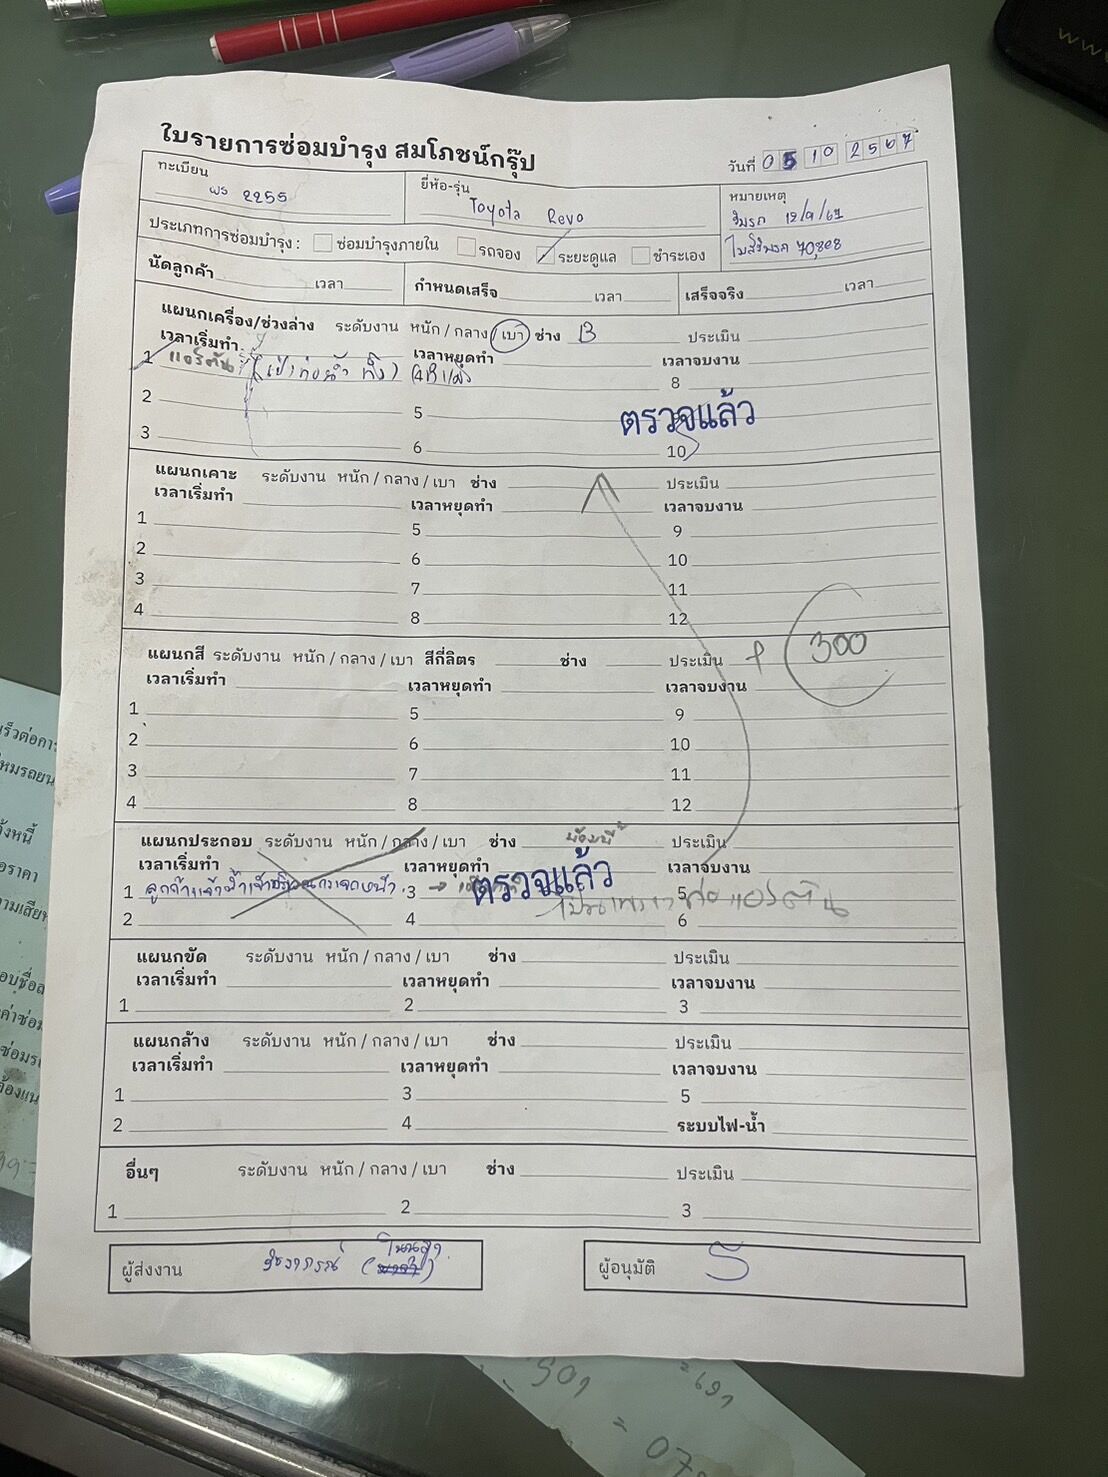 ใบรายการซ่อมบำรุง สมโภชน์กรุ๊ป
วันที่ 05 10 2567
ทะเบียน ผร 2255
ยี่ห้อ-รุ่น Toyota Revo
หมายเหตุ
รับรถ 12/9/67
ไมล์รับรถ 70,808
ประเภทการซ่อมบำรุง : ซ่อมบำรุงภายใน รถจอง ระยะดูแล ชำระเอง
นัดลูกค้า เวลา กำหนดเสร็จ เวลา เสร็จจริง เวลา
แผนกเครื่อง/ช่วงล่าง ระดับงาน หนัก / กลาง / เบา ช่าง B ประเมิน
เวลาเริ่มทำ เวลาหยุดทำ เวลาจบงาน
1 แอร์ตัน (เป่าท่อน้ำ ทิ้ง) 4 8
2 5 ตรวจแล้ว
3 6 10
แผนกเคาะ ระดับงาน หนัก / กลาง / เบา ช่าง ประเมิน
เวลาเริ่มทำ เวลาหยุดทำ เวลาจบงาน
1 5 9
2 6 10
3 7 11
4 8 12
แผนกสี ระดับงาน หนัก / กลาง / เบา สีกี่ลิตร ช่าง ประเมิน 300
เวลาเริ่มทำ เวลาหยุดทำ เวลาจบงาน
1 5 9
2 6 10
3 7 11
4 8 12
แผนกประกอบ ระดับงาน หนัก / กลาง / เบา ช่าง ประเมิน
เวลาเริ่มทำ เวลาหยุดทำ เวลาจบงาน
1 ลูกค้าแจ้งน้ำเข้า 3 ตรวจแล้ว 5
2 4 6
แผนกขัด ระดับงาน หนัก / กลาง / เบา ช่าง ประเมิน
เวลาเริ่มทำ เวลาหยุดทำ เวลาจบงาน
1 2 3
แผนกล้าง ระดับงาน หนัก / กลาง / เบา ช่าง ประเมิน
เวลาเริ่มทำ เวลาหยุดทำ เวลาจบงาน
1 3 5
2 4 ระบบไฟ-น้ำ
อื่นๆ ระดับงาน หนัก / กลาง / เบา ช่าง ประเมิน
1 2 3
ผู้ส่งงาน
ผู้อนุมัติ